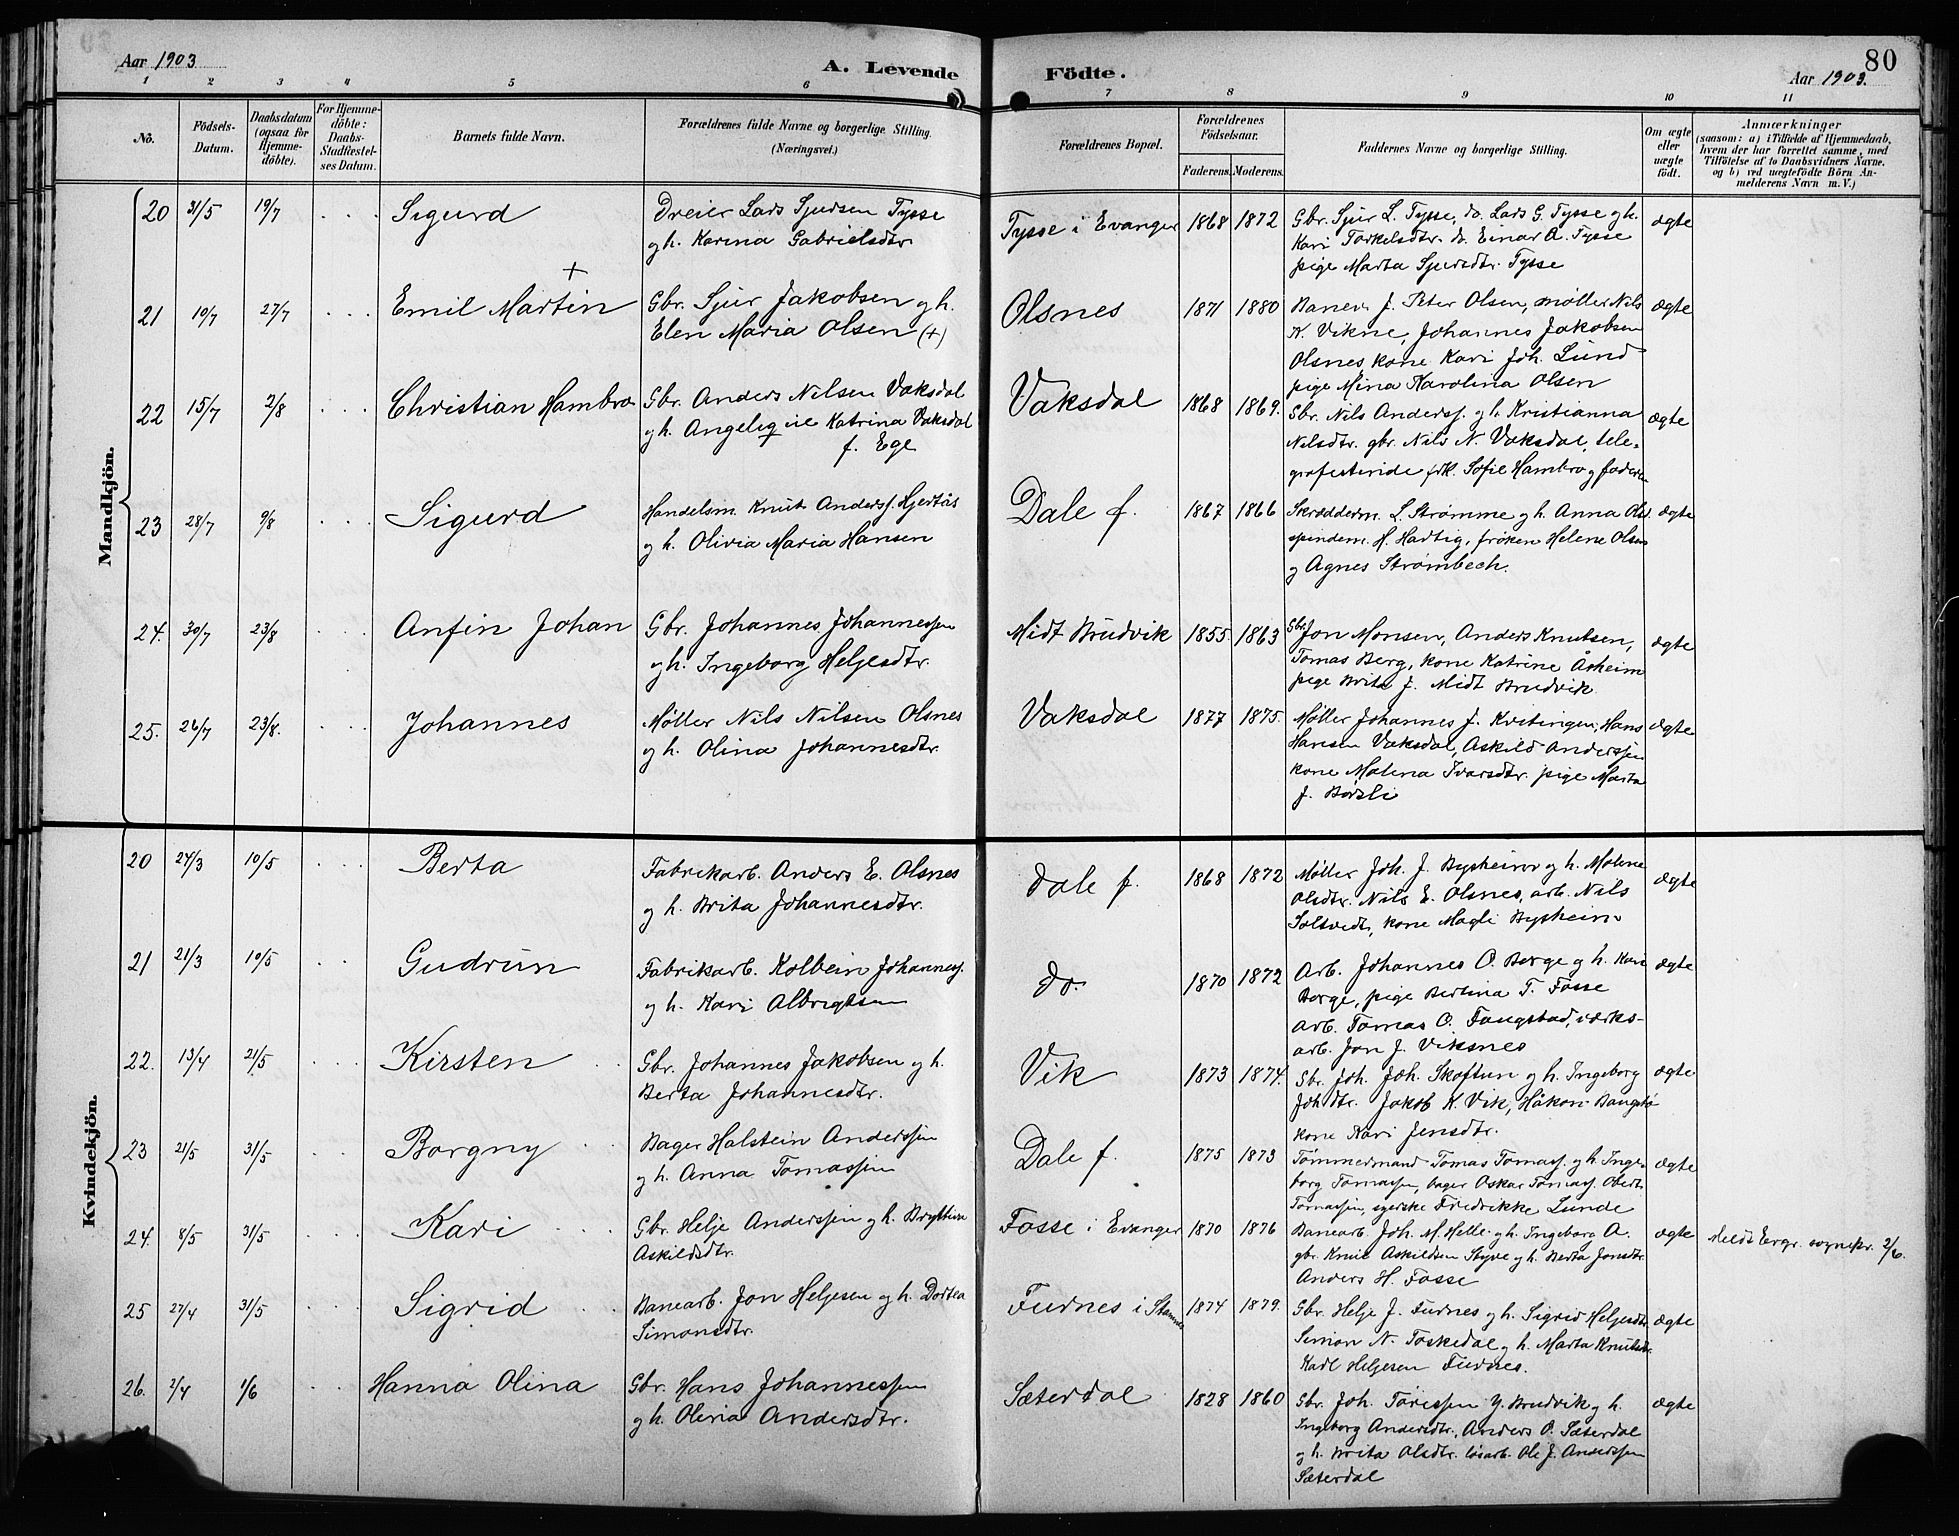 Aar 1903
A. Levende Födte.
80
Aar 1903.
1 2 3 4 5 6 7 8 9 10 11
No.
Födsels-Datum.
Daabsdatum (ogsaa for Hjemme-döbte).
For Hjemme-döbte: Daabs-Stadfæstel-ses Datum.
Barnets fulde Navn.
Forældrenes fulde Navne og borgerlige Stilling. (Næringsvei.)
Forældrenes Bopæl.
Forældrenes Födselsaar.
Faderens. Moderens.
Faddernes Navne og borgerlige Stilling.
Om ægte eller uægte födt.
Anmærkninger
(saasom: a) i Tilfælde af Hjemmedaab,
hvem der har forrettet samme, med
Tilföielse af to Daabsvidners Navne.
og b) ved uægtefödte Börn An-
melderens Navn m. V.)
Mandkjön.
20 31/5 19/7 Sigurd
Dreier Lars Sjursen Tysse
og h. Karina Gabrielsdtr.
Tysse i Evanger 1868 1872
Gbr. Sjur L. Tysse, do. Lars G. Tysse og h.
Kari Torkelsdtr. do. Einar A. Tysse
pige Marta Sjursdtr. Tysse
ægte
21 10/7 27/7 Emil Martin +
Gbr. Sjur Jakobsen og h.
Elen Maria Olsen (+)
Olsnes 1871 1880
J. Peter Olsen, møller Nils
K. Vikne, Johannes Jakobsen
Olsnes, kone Kari Joh. Lund
pige Mina Karolina Olsen
ægte
22 15/7 2/8 Christian Hambro
Gbr. Anders Nilsen Vaksdal
og h. Katrina Vaksdal
f. Ege
Vaksdal 1868 1869.
Gbr. Nils Anderss. og h. Kristianna
Nilsdtr. gbr. Nils N. Vaksdal, tele-
grafistinde frk. Sofie Hambro og faderen
ægte
23 28/7 9/8 Sigurd
Handelsm. Knut Anderss. Hjertås
og h. Olivia Maria Hansen
Dale f. 1867 1866
Skræddern. L. Strømme og h. Anna Ols.
spindem. H. Hartig, frøken Helene Olsen
og Agnes Strømbech.
ægte
24. 30/7 23/8 Anfin Johan
Gbr. Johannes Johannessen
og h. Ingeborg Heljesdtr.
Midt Brudvik 1855. 1863
Gbr. Jon Monsen, Anders Knutsen,
Tomas Berg, kone Katrine Åsheim
pige Brita J. Midt Brudvik
ægte
25. 26/7 23/8. Johannes
Møller Nils Nilsen Olsnes
og h. Olina Johannesdtr.
Vaksdal 1877 1875.
Møller Johannes J. Kvitingen, Hans
Hansen Vaksdal, Askild Anderssen
kone Malena Ivarsdtr. pige Marta
J. Børsli
ægte
Kvindekjön.
20 24/3 10/5 Berta
Fabrikarb. Anders E. Olsnes
og h. Brita Johannesdtr.
Dale f. 1868 1872
Møller Joh. J. Bysheim og h. Malene
Olsdtr. Nils E. Olsnes, arb. Nils
kone Magli Bysheim
ægte
21 21/3 10/5 Gudrun
Fabrikarb. Kolbein Johanness.
og h. Kari Albrigtsen
do. 1870 1872
Arb. Johannes O. Berge og h. Kari
Berge, pige Bertina T. Fosse
arb. Tomas O. Fangstad, værks-
arb. Jon J. Viksnes
ægte
22. 13/4 21/5 Kirsten
Gbr. Johannes Jakobsen og h.
Berta Johannesdtr.
Vik 1873 1874.
Gbr. Joh. Joh. Skoftun og h. Ingeborg
Johdtr. Jakob K. Vik, Håkon
kone Kari Jensdtr.
ægte
23 21/5 31/5 Borgny
Bager Halstein Anderssen
og h. Anna Tomassen
Dale f. 1875 1873
Tømmermand Tomas Tomass. og h. Inge-
borg Tomassen, bager Oskar Tomass.
Tomassen, syerske Fredrikke Lunde
ægte
24. 8/5 31/5 Kari
Gbr. Helje Anderssen og h. Brytteva
Askildsdtr.
Fosse i Evanger 1870 1876
Banearb. Joh. M. Helle og h. Ingeborg A.
gbr. Knut Askildsen Styve og h. Berta Jonsdtr.
Anders H. Fosse
ægte
Meldt Evgr. sognepr. 2/6.
25 27/4 31/5 Sigrid
Banearb. Jon Heljesen og h. Dortea
Simonsdtr.
Furnes i Stamnes 1874 1879.
Gbr. Helje J. Furnes og h. Sigrid Heljesdtr.
Simon N. Toskedal og h. Marta Knutsdtr.
Karl Heljesen Furnes.
ægte
26. 2/4 1/6 Hanna Olina
Gbr. Hans Johannessen
og h. Olena Andersdtr.
Sæterdal 1828 1860
Gbr. Joh. Torissen Y. Brudvik og h.
Ingeborg Andersdtr., Anders O. Sæterdal
og h. Brita Olsdtr. løsarb. Ole J. Anderssen
Sæterdal
ægte